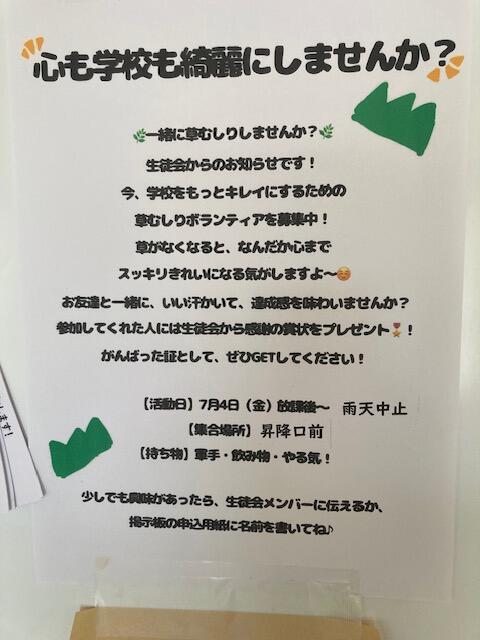 心も学校も綺麗にしませんか？
🌿一緒に草むしりしませんか？🌿
生徒会からのお知らせです！
今、学校をもっとキレイにするための
草むしりボランティアを募集中！
草がなくなると、なんだか心まで
スッキリきれいになる気がしますよ〜😊
お友達と一緒に、いい汗かいて、達成感を味わいませんか？
参加してくれた人には生徒会から感謝の賞状をプレゼント🎖！
がんばった証として、ぜひGETしてください！
【活動日】7月4日（金）放課後〜　雨天中止
【集合場所】昇降口前
【持ち物】軍手・飲み物・やる気！
少しでも興味があったら、生徒会メンバーに伝えるか、
掲示板の申込用紙に名前を書いてね♪
します！